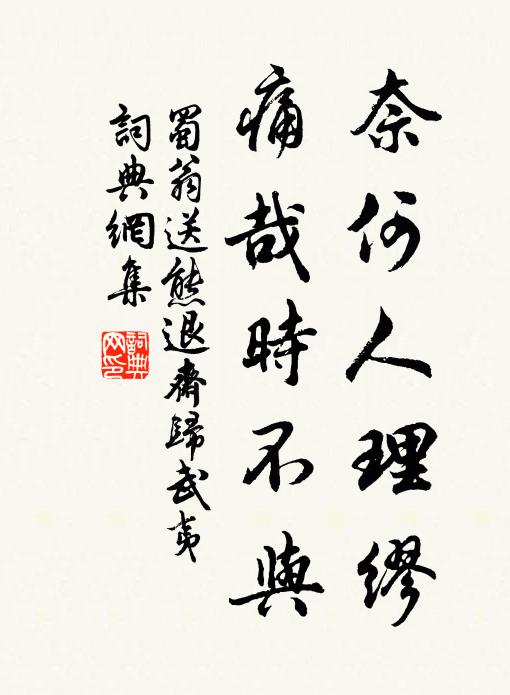 奈何人理繆
痛哉時不與
蜀翁送熊退齋歸武夷
詞典網集
詞典網印